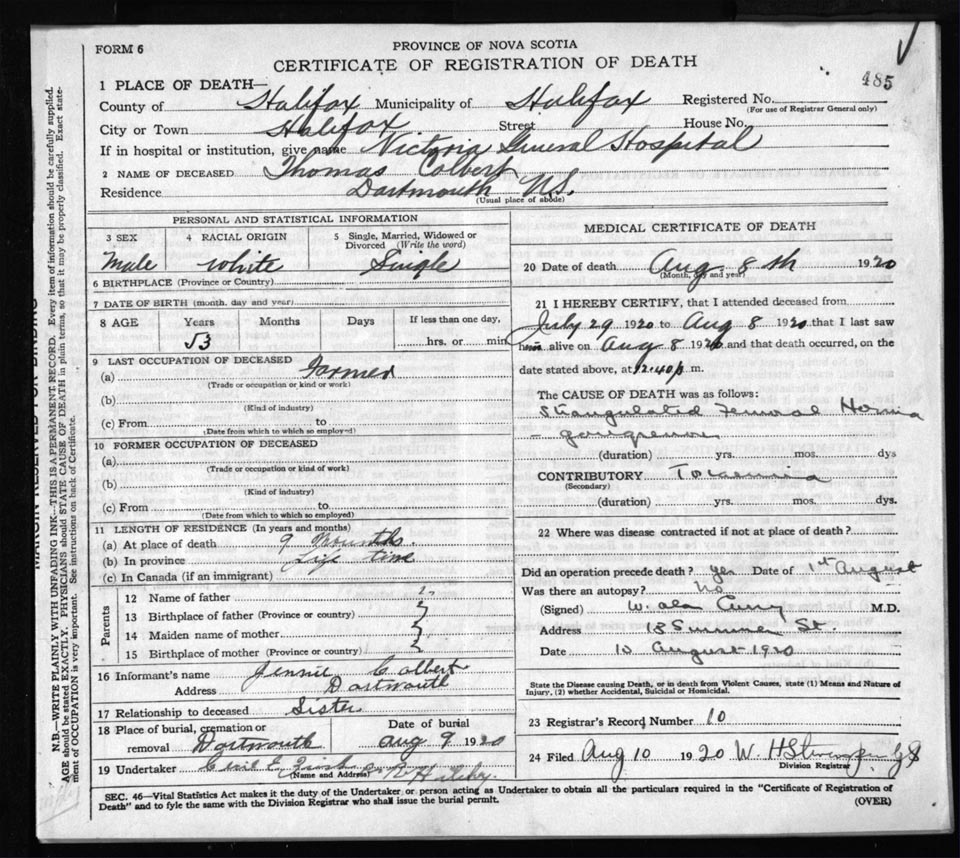 FORM 6
PROVINCE OF NOVA SCOTIA
CERTIFICATE OF REGISTRATION OF DEATH
485
1 PLACE OF DEATH—
County of Halifax Municipality of Halifax Registered No.
(For use of Registrar General only)
City or Town Halifax Street House No.
If in hospital or institution, give name Victoria General Hospital
2 NAME OF DECEASED Thomas Colbert
Residence Dartmouth N.S.
(Usual place of abode)
PERSONAL AND STATISTICAL INFORMATION
3 SEX 4 RACIAL ORIGIN 5 Single, Married, Widowed or Divorced (Write the word)
Male White Single
6 BIRTHPLACE (Province or Country)
7 DATE OF BIRTH (month, day and year)
8 AGE Years Months Days If less than one day,
53 hrs. or min
9 LAST OCCUPATION OF DECEASED
(a) Farmer
(Trade or occupation or kind or work)
(b)
(Kind of industry)
(c) From to
(Date from which to which so employed)
10 FORMER OCCUPATION OF DECEASED
(a)
(Trade or occupation or kind of work)
(b)
(Kind of industry)
(c) From to
(Date from which to which so employed)
11 LENGTH OF RESIDENCE (In years and months)
(a) At place of death 9 Months
(b) In province Life time
(c) In Canada (if an immigrant)
Parents
12 Name of father ?
13 Birthplace of father (Province or country)
14 Maiden name of mother
15 Birthplace of mother (Province or country)
16 Informant's name Jennie Colbert
Address Dartmouth
17 Relationship to deceased Sister
18 Place of burial, cremation or removal Dartmouth
Date of burial Aug 9 1920
19 Undertaker
(Name and Address)
MEDICAL CERTIFICATE OF DEATH
20 Date of death Aug 8th 1920
(Month, day and year)
21 I HEREBY CERTIFY, that I attended deceased from
July 29 1920 to Aug 8 1920 that I last saw
him alive on Aug 8 1920 and that death occurred, on the
date stated above, at 12.40 p m.
The CAUSE OF DEATH was as follows:
Strangulated Femoral Hernia
- gangrenous
(duration) yrs. mos. dys
CONTRIBUTORY Toxaemia
(Secondary)
(duration) yrs. mos. dys.
22 Where was disease contracted if not at place of death?
Did an operation precede death? Yes Date of 1st August
Was there an autopsy? No
(Signed) W. Alan Curry M.D.
Address 18 Summer St.
Date 10 August 1920
State the Disease causing Death, or in death from Violent Causes, state (1) Means and Nature of
Injury, (2) whether Accidental, Suicidal or Homicidal.
23 Registrar's Record Number 10
24 Filed Aug 10 1920 W. H.
Division Registrar
SEC. 46—Vital Statistics Act makes it the duty of the Undertaker or person acting as Undertaker to obtain all the particulars required in the "Certificate of Registration of
Death" and to fyle the same with the Division Registrar who shall issue the burial permit.
(OVER)
MARGIN RESERVED FOR BINDING
N.B.—WRITE PLAINLY WITH UNFADING INK—THIS IS A PERMANENT RECORD. Every item of information should be carefully supplied.
AGE should be stated EXACTLY. PHYSICIANS should STATE CAUSE OF DEATH in plain terms, so that it may be properly classified. Exact statement
of OCCUPATION is very important. See instructions on back of Certificate.